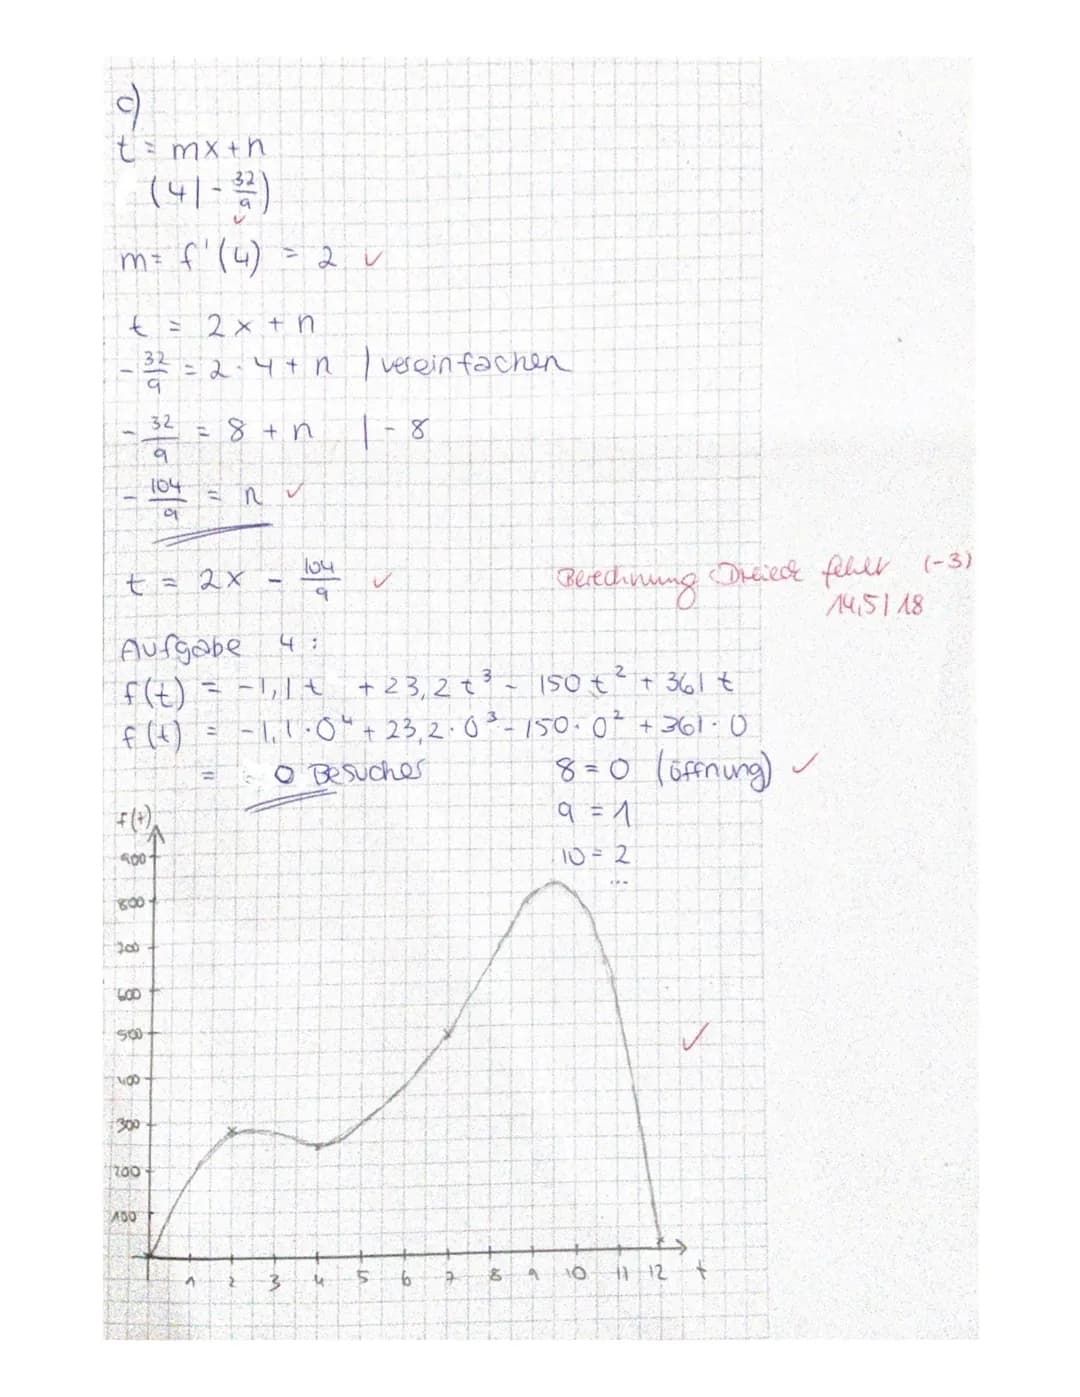 c)
t = mx+n
(4|-32/9) ✓
m= f'(4) = 2 ✓
t = 2x + n
-32/9 = 2·4 + n | vereinfachen
-32/9 = 8 + n | -8
-104/9 = n ✓
t = 2x - 104/9 ✓
Berechnung Dreieck fehlt (-3)
14,5/18
Aufgabe 4:
f(t) = -1,1t + 23,2t³ - 150t² + 361t
f(t) = -1,1·0⁴ + 23,2·0³ - 150·0² + 361·0
= 0 Besucher
8 = 0 (öffnung) ✓
9 = 1
10 = 2
...
f(t)
900
800
700
600
500 ✓
400
300
200
100
1 2 3 4 5 6 7 8 9 10 11 12 t